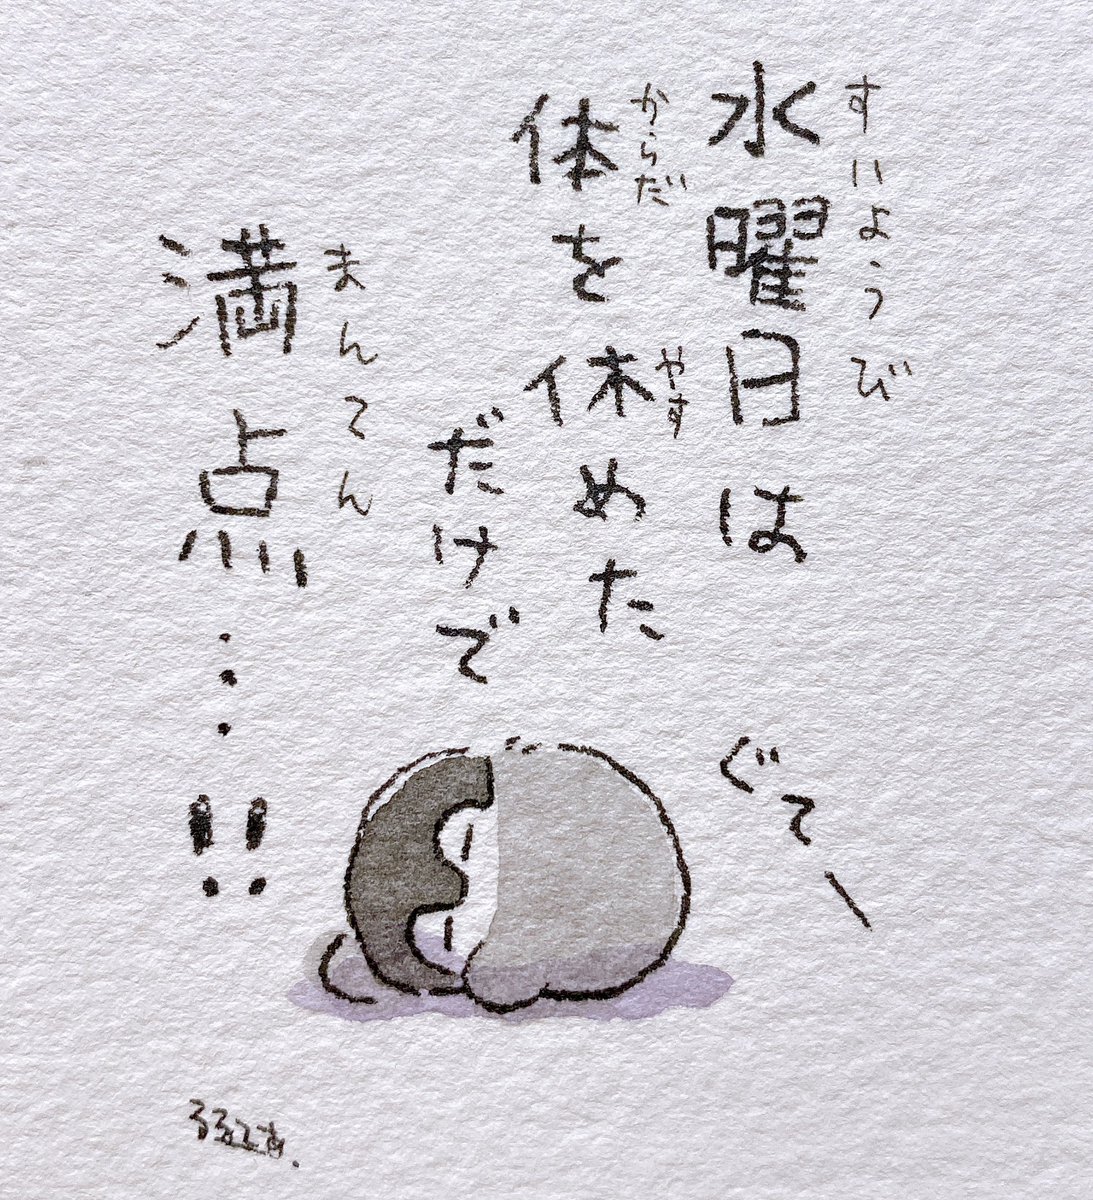 水曜日は
すいようび
体を休めた
からだ
やす
だけで
満点…!!
まんてん
ぐてー